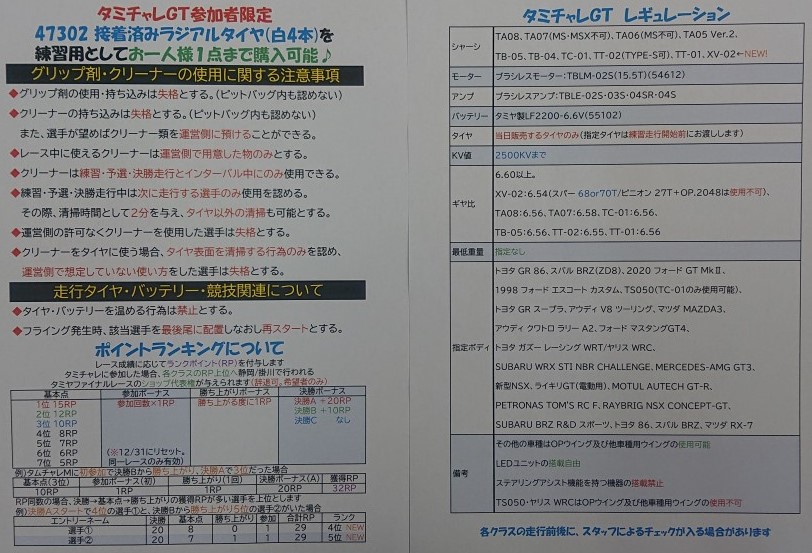 タミチャレGT参加者限定
47302 接着済みラジアルタイヤ(白4本)を
練習用としてお一人様1点まで購入可能♪
グリップ剤・クリーナーの使用に関する注意事項
◆グリップ剤の使用・持ち込みは失格とする。(ピットバッグ内も認めない)
◆クリーナーの持ち込みは失格とする。(ピットバッグ内も認めない)
また、選手が望めばクリーナー類を運営側に預けることができる。
◆レース中に使えるクリーナーは運営側で用意した物のみとする。
◆クリーナーは練習・予選・決勝走行とインターバル中にのみ使用できる。
◆練習・予選・決勝走行中は次に走行する選手のみ使用を認める。
その際、清掃時間として2分を与え、タイヤ以外の清掃も可能とする。
◆運営側の許可なくクリーナーを使用した選手は失格とする。
◆クリーナーをタイヤに使う場合、タイヤ表面を清掃する行為のみを認め、
運営側で想定していない使い方をした選手は失格とする。
走行タイヤ・バッテリー・競技関連について
◆タイヤ・バッテリーを温める行為は禁止とする。
◆フライング発生時、該当選手を最後尾に配置しなおし再スタートとする。
ポイントランキングについて
レース成績に応じてランクポイント(RP)を付与します
タミチャレに参加した場合、各クラスのRP上位へ静岡/掛川で行われる
タミヤファイナルレースのショップ代表権が与えられます(辞退可。希望者のみ)
基本点 参加ボーナス 勝ち上がりボーナス 決勝ボーナス
1位 15RP 参加回数×1RP 勝ち上がる度に1RP 決勝A +20RP
2位 12RP 決勝B +10RP
3位 10RP 決勝C なし
4位 8RP
5位 7RP
6位 6RP (※12/31にリセット。
7位 5RP 同一レースのみ有効)
例)タムチャレMに初参加で決勝Bから勝ち上がり、決勝Aで3位だった場合
基本点(3位) 参加ボーナス(初) 勝ち上がり(1回) 決勝ボーナス(A) 獲得RP
10RP 1RP 1RP 20RP 32RP
RP同数の場合、決勝→基本点→勝ち上がりの獲得RPが多い選手を上位とします
例)決勝Aスタートで4位の選手①と、決勝Bから勝ち上がり5位の選手②がいた場合
エントリーネーム 決勝 基本点 勝ち上がり 参加 合計RP ランク
選手① 20 8 0 1 29 4位 NEW
選手② 20 7 1 1 29 5位 NEW
タミチャレGT レギュレーション
シャーシ TA08、TA07(MS・MSX不可)、TA06(MS不可)、TA05 Ver.2、
TB-05、TB-04、TC-01、TT-02(TYPE-S可)、TT-01、XV-02←NEW!
モーター ブラシレスモーター:TBLM-02S(15.5T)(54612)
アンプ ブラシレスアンプ:TBLE-02S・03S・04SR・04S
バッテリー タミヤ製LF2200-6.6V(55102)
タイヤ 当日販売するタイヤのみ(指定タイヤは練習走行開始前にお渡しします)
KV値 2500KVまで
ギヤ比 6.60以上。
XV-02:6.54(スパー 68or70T/ピニオン 27T+OP.2048は使用不可)、
TA08:6.56、TA07:6.58、TC-01:6.56、
TB-05:6.56、TT-02:6.55、TT-01:6.56
最低重量 指定なし
指定ボディ トヨタ GR 86、スバル BRZ(ZD8)、2020 フォード GT MkⅡ、
1998 フォード エスコート カスタム、TS050(TC-01のみ使用可能)、
トヨタ GR スープラ、アウディ V8 ツーリング、マツダ MAZDA3、
アウディ クワトロ ラリー A2、フォード マスタングGT4、
トヨタ ガズー レーシング WRT/ヤリス WRC、
SUBARU WRX STI NBR CHALLENGE、MERCEDES-AMG GT3、
新型NSX、ライキリGT(電動用)、MOTUL AUTECH GT-R、
PETRONAS TOM'S RC F、RAYBRIG NSX CONCEPT-GT、
SUBARU BRZ R&D スポーツ、トヨタ 86、スバル BRZ、マツダ RX-7
備考 その他の車種はOPウイング及び他車種用ウイングの使用可能
LEDユニットの搭載自由
ステアリングアシスト機能を持つ機器の搭載禁止
TS050・ヤリス WRCはOPウイング及び他車種用ウイングの使用不可
各クラスの走行前後に、スタッフによるチェックが入る場合があります